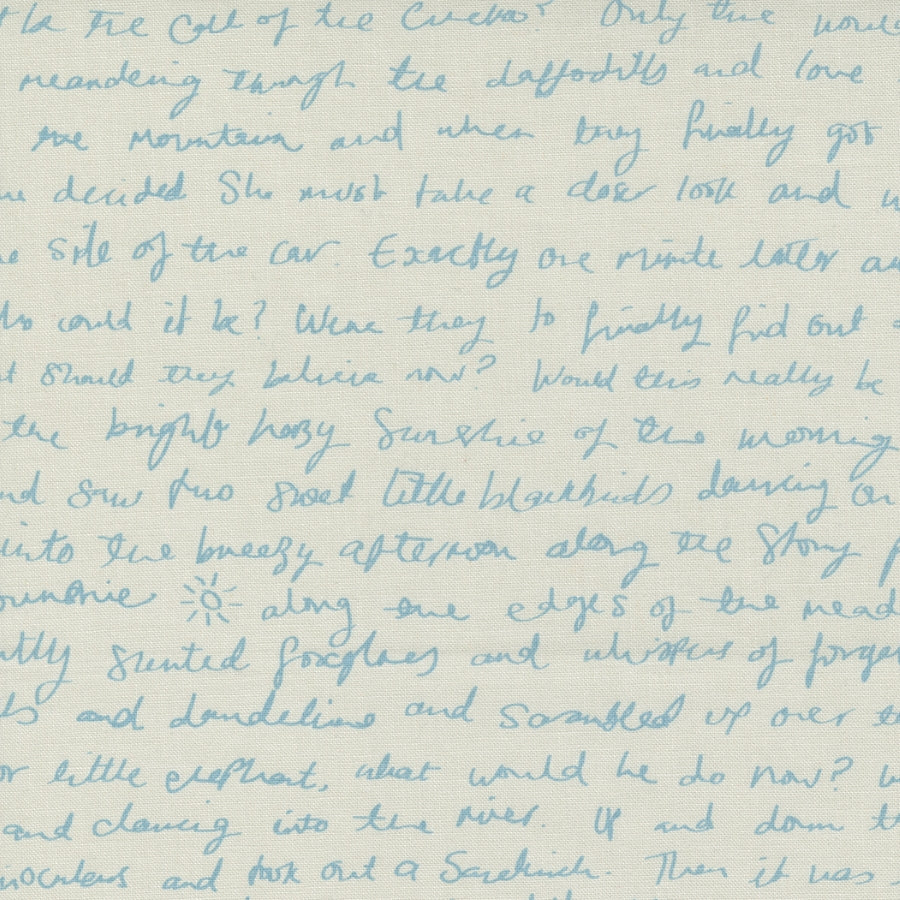 be the Call of the Cuckoo? Only time would
meandering through the daffodills and love
the mountain and when they finally got
decided She must take a closer look and
side of the car. Exactly one minute later
could it be? Were they to finally find out
should they believe now? Would this really be
the bright hazy Sunshine of the morning
and saw two sweet little blackbirds dancing on
into the breezy afternoon along the Stony
Sunshine along the edges of the
scented foxgloves and whispers of
and dandelions and Scrambled up over
little elephant, what would he do now?
and dancing into the river. Up and down
and took out a Sandwich. Then it was